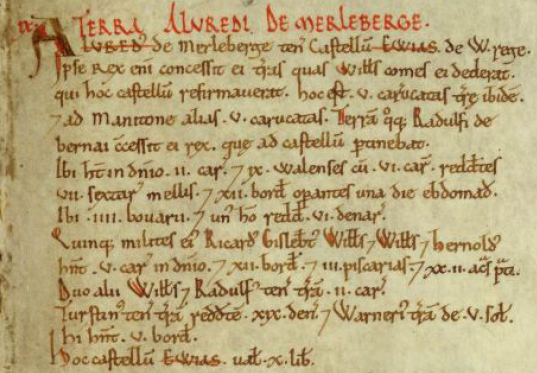 TERRA ALUREDI DE MERLEBERGE.
ALURED' de Merleberge ten' Castellū EWIAS. de W. rege.
Ipse Rex eni concessit ei t'ras quas Willʼs comes ei dederat.
qui hoc castellū refirmauerat. hoc est. v. carucatas t'ræ ibidē.
⁊ ad Manitone alias. v. carucatas. Terrā q̨ Radulfi de
bernai c̄cessit ei rex. que ad castellū ptinebat.
Ibi hn̄t in dn̄io. ii. car'. ⁊ ix. Walenses cū. vi. car'. reddtes
vii. sextar' mellis. ⁊ xii. bord' opantes una die ebdomad'.
Ibi. iiii. bouarii. ⁊ un' hō redd'. vi. denar'.
Quinq; milites ei' Ricard' Gislebt' Willʼs ⁊ Willʼs ⁊ hernold'
hn̄t. v. car' in dn̄io. ⁊ xii. bord'. ⁊ iii. piscarias. ⁊ xx.ii. ac's p'ti.
Duo alii Willʼs ⁊ Radulf' ten' t'rā. ii. car'.
Turstan' ten' t'rā reddtē. xix. den'. ⁊ Warner' t'rā de. v. sol'.
hi hn̄t. v. bord'.
Hoc castellū EWIAS. ual't. x. lib'.